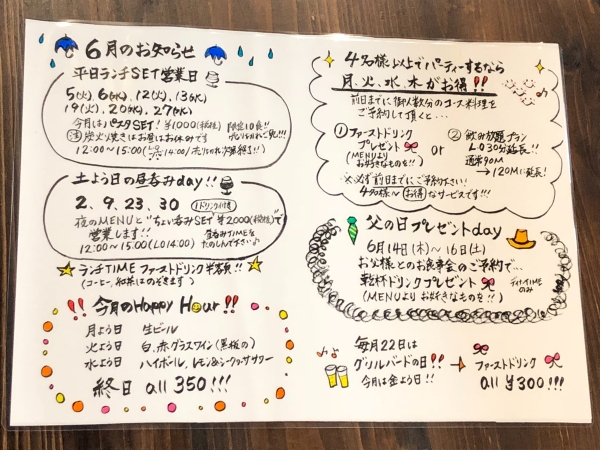 6月のお知らせ
平日ランチSET営業日
5(火) 6(水), 12(火), 13(水)
19(火), 20(水), 27(水)
今月はパスタSET! ¥1000(税抜) 限定10食!!
㊟炭火焼きはお昼はお休みです
12:00~15:00
土よう日の昼呑みday!!
2. 9. 23. 30
1ドリンク付き
夜のMENUと"ちょい呑みSET ¥2,000(税抜)"で
営業します!!
昼呑みTIMEを
たのしんで下さい♪
12:00~15:00(LO14:00)
ランチTIME ファーストドリンク半客額!!
(コーヒー、和茶はのぞきます)
!! 今月のHappy Hour!!
月よう日 生ビール
火よう日 白、赤グラスワイン(黒板の)
水よう日 ハイボール、レモン&シークヮーサーサワー
終日 all 350!!!
4名様以上でパーティーするなら
月、火、水、木がお得!!
前日までに御人数分のコース料理を
ご予約して頂くと…
① ファーストドリンク
プレゼント
(MENUより
お好きなものを!!)
or
② 飲み放題プラン
L.O 30分延長!!
通常90M
→120Mに延長!
※必ず前日までにご予約下さい!
4名様~ お得なサービスです!!!
父の日プレゼントday
6月14日(木)~16日(土)
お父様とのお食事会のご予約で…
乾杯ドリンクプレゼント
(MENUよりお好きなものを!!)
ディナーTIME
のみ
毎月22日は
グリルバードの日!!
今月は金よう日!!
→ファーストドリンク
all ¥300!!!